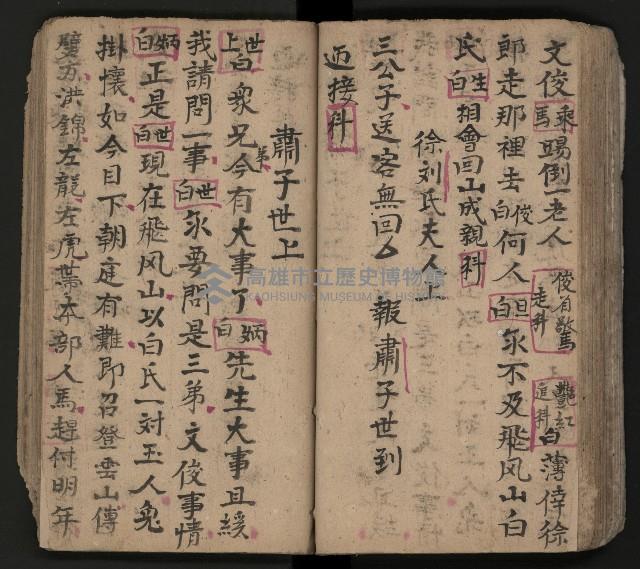 文俊乘馬踢倒一老人 俊自驚走科 艷紅追科白 薄倖徐
郎走那裡去 俊白 何人 旦白 永不及飛风山白
氏 生白 相會回山成親科
徐刘氏夫人上
三公子送客無回厶 報肅子世到
迊接科
肅子世上
世上白衆兄弟今有大事了 炳白 先生大事且緩
我請問一事 世白 永要問是三弟文俊事情
炳白 正是 世白 現在飛风山以白氏一对玉人免
掛懷如今目下朝庭有難即召登雲山傳
雙方洪錦左龍左虎帶本部人馬趕付明年
高雄市立歷史博物館
KAOHSIUNG MUSEUM OF HISTORY